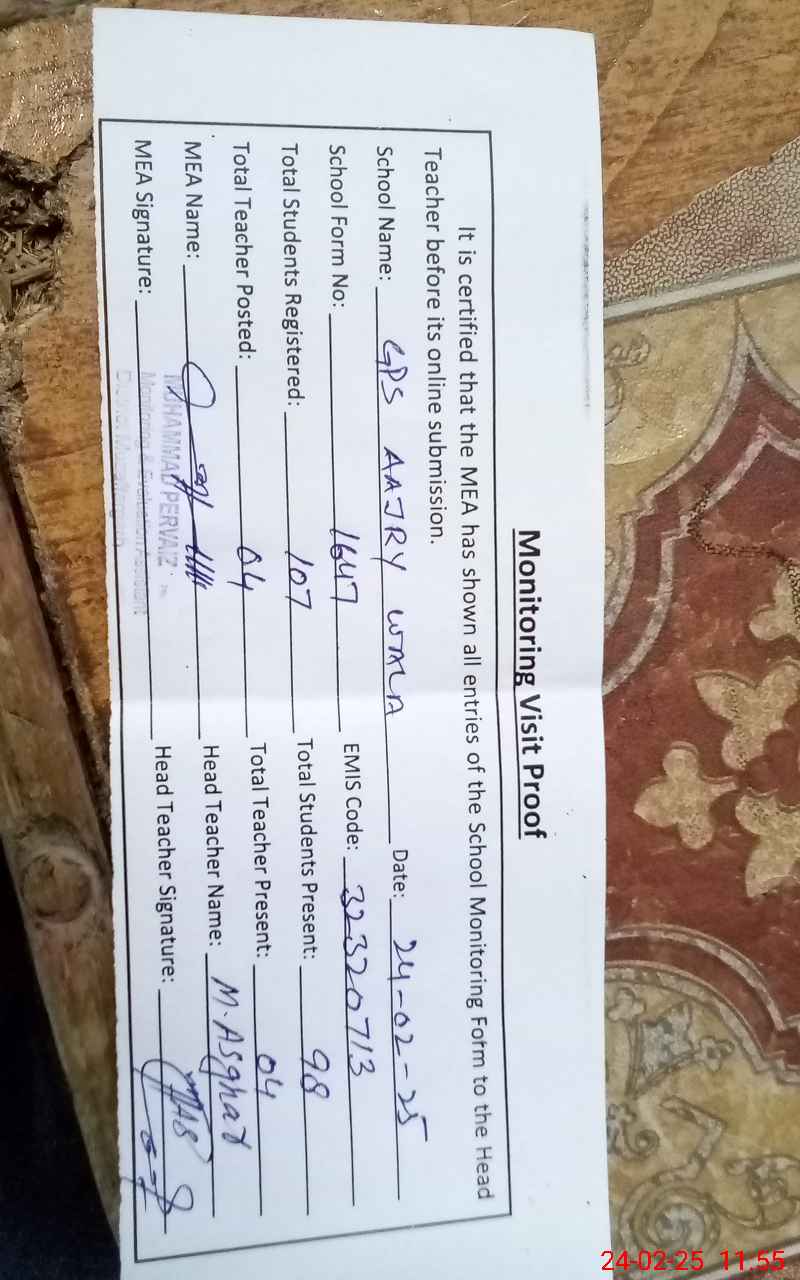 Monitoring Visit Proof
It is certified that the MEA has shown all entries of the School Monitoring Form to the Head
Teacher before its online submission.
School Name: GPS AAJRY WALA Date: 24-02-25
School Form No: 1647 EMIS Code: 32320713
Total Students Registered: 107 Total Students Present: 98
Total Teacher Posted: 04 Total Teacher Present: 04
MEA Name: Head Teacher Name: M. Asghar
MEA Signature: Head Teacher Signature:
MUHAMMAD PERVAIZ
Monitoring & Evaluation Assistant
District
24-02-25 11:55